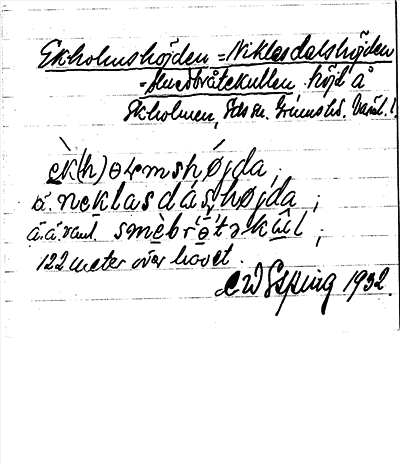 Ekholmshöjden = Niklasdalshöjden
= Smedbråtekullen höjd å
Ekholmen, Eds sn. Grums hd. Värml. l.
ɛ̀k(h)ɵɽmshǿjda ;
å. neklasdáʂhøjda ;
å. å. vanl. smèbrɵ́təkɯ̂l ;
122 meter över havet.
C W Esping 1932.